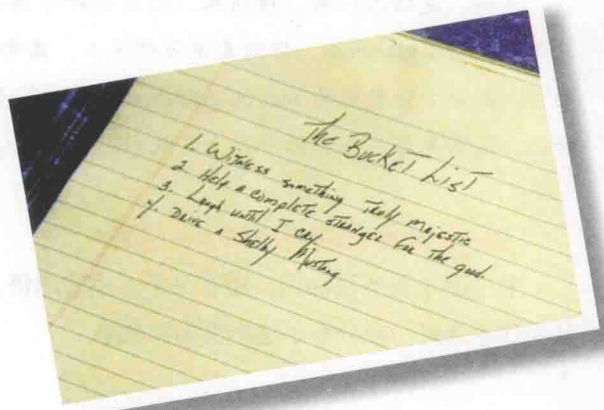 The Bucket List
1. Witness something truly majestic
2. Help a complete stranger for the good
3. Laugh until I cry
4. Drive a Shelby Mustang